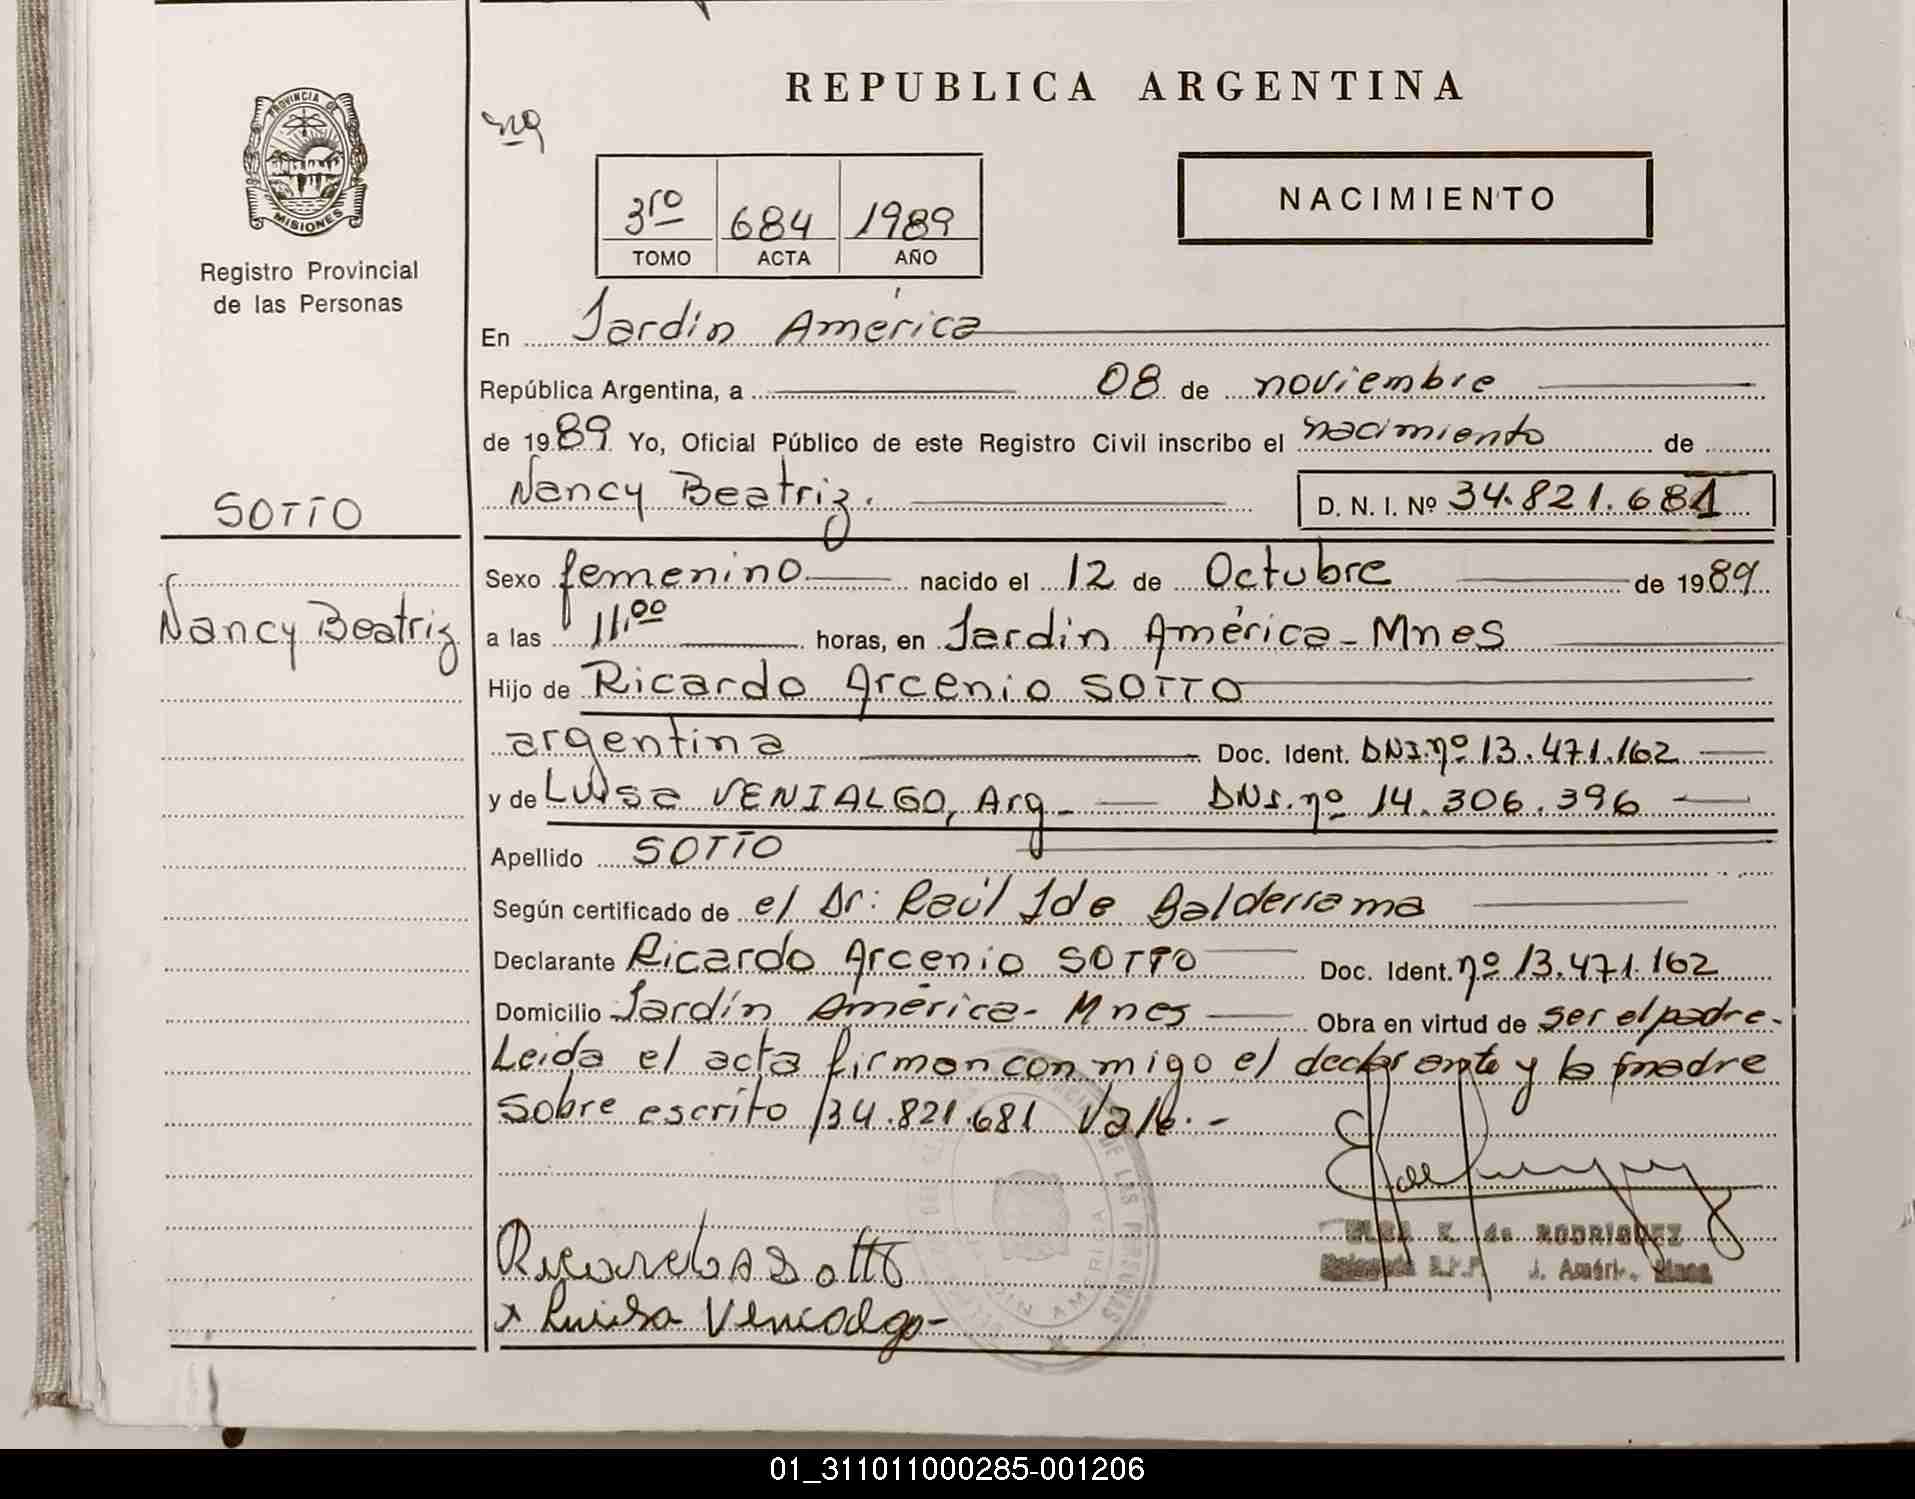 REPUBLICA ARGENTINA
PROVINCIA DE
MISIONES
Registro Provincial
de las Personas
3ro 684 1989
TOMO ACTA AÑO
NACIMIENTO
En Jardín América
República Argentina, a 08 de noviembre
de 1989 Yo, Oficial Público de este Registro Civil inscribo el nacimiento de
Nancy Beatriz. D. N. I. Nº 34.821.681
SOTTO
Nancy Beatriz
Sexo femenino nacido el 12 de Octubre de 1989
a las 11,00 horas, en Jardín América - Mnes
Hijo de Ricardo Arcenio SOTTO
argentina Doc. Ident. DNI. nº 13.471.162
y de Luisa VENIALGO, Arg - DNI. nº 14.306.396
Apellido SOTTO
Según certificado de el Dr: Raúl Ide Balderrama
Declarante Ricardo Arcenio SOTTO Doc. Ident. nº 13.471.162
Domicilio Jardín América - Mnes Obra en virtud de ser el padre.
Leida el acta firman con migo el declarante y la madre
Sobre escrito /34.821.681 Vale. -
Ricardo A Sotto
x Luisa Venialgo -
ELSA K. de RODRIGUEZ
Delegada R.P.P. J. Améri. Mnes
01_311011000285-001206